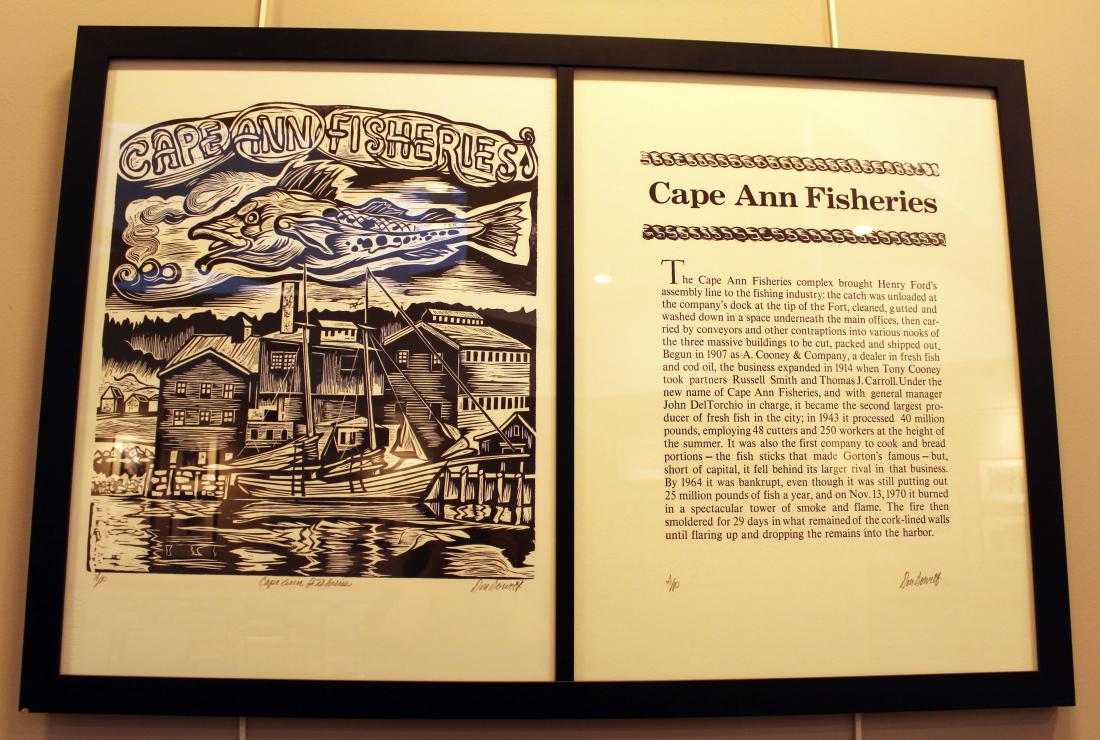 CAPE ANN FISHERIES
Cape Ann Fisheries
Cape Ann Fisheries
The Cape Ann Fisheries complex brought Henry Ford's
assembly line to the fishing industry: the catch was unloaded at
the company's dock at the tip of the Fort, cleaned, gutted and
washed down in a space underneath the main offices, then car-
ried by conveyors and other contraptions into various nooks of
the three massive buildings to be cut, packed and shipped out.
Begun in 1907 as A. Cooney & Company, a dealer in fresh fish
and cod oil, the business expanded in 1914 when Tony Cooney
took partners Russell Smith and Thomas J. Carroll. Under the
new name of Cape Ann Fisheries, and with general manager
John DelTorchio in charge, it became the second largest pro-
ducer of fresh fish in the city; in 1943 it processed 40 million
pounds, employing 48 cutters and 250 workers at the height of
the summer. It was also the first company to cook and bread
portions — the fish sticks that made Gorton's famous — but,
short of capital, it fell behind its larger rival in that business.
By 1964 it was bankrupt, even though it was still putting out
25 million pounds of fish a year, and on Nov. 13, 1970 it burned
in a spectacular tower of smoke and flame. The fire then
smoldered for 29 days in what remained of the cork-lined walls
until flaring up and dropping the remains into the harbor.
A/P